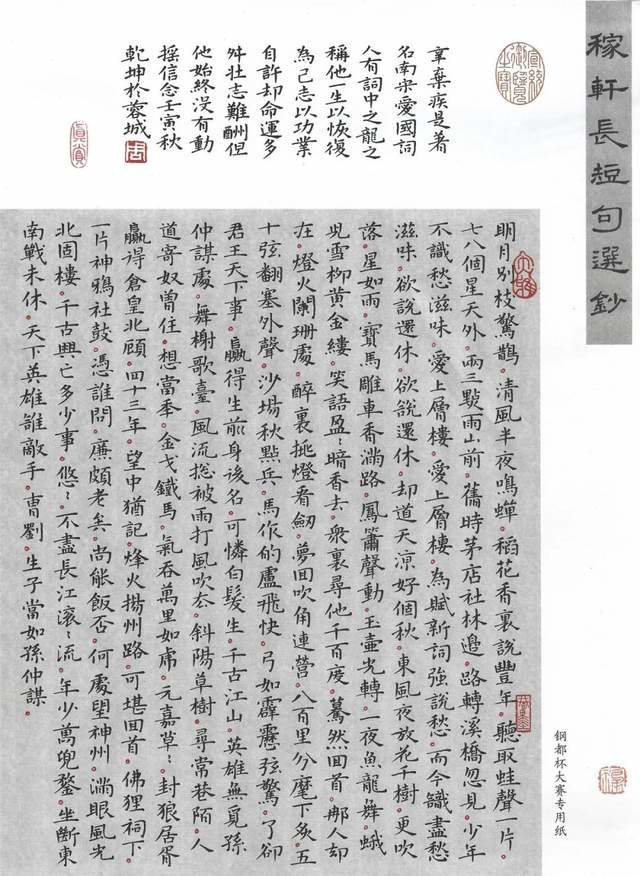 稼軒長短句選鈔
辛棄疾是著
名南宋愛國詞
人有詞中之龍之
稱他一生以恢復
為己志以功業
自許却命運多
舛壯志難酬但
他始終没有動
搖信念壬寅秋
乾坤於蓉城
周
明月別枝驚鵲。清風半夜鳴蟬。稻花香裏說豐年。聽取蛙聲一片。
七八個星天外。兩三點雨山前。舊時茅店社林邊。路轉溪橋忽見。少年
不識愁滋味。愛上層樓。愛上層樓。為賦新詞強說愁。而今識盡愁
滋味。欲說還休。欲說還休。却道天涼好個秋。東風夜放花千樹。更吹
落。星如雨。寶馬雕車香滿路。鳳簫聲動。玉壺光轉。一夜魚龍舞。蛾
兒雪柳黃金縷。笑語盈〻暗香去。衆裏尋他千百度。驀然回首。那人却
在。燈火闌珊處。醉裏挑燈看劍。夢回吹角連營。八百里分麾下炙。五
十弦翻塞外聲。沙場秋點兵。馬作的盧飛快。弓如霹靂弦驚。了卻
君王天下事。贏得生前身後名。可憐白髮生。千古江山。英雄無覓孫
仲謀處。舞榭歌臺。風流總被雨打風吹去。斜陽草樹。尋常巷陌。人
道寄奴曾住。想當年。金戈鐵馬。氣吞萬里如虎。元嘉草〻。封狼居胥
贏得倉皇北顧。四十三年。望中猶記。烽火揚州路。可堪回首。佛狸祠下
一片神鴉社鼓。憑誰問。廉頗老矣。尚能飯否。何處望神州。滿眼風光
北固樓。千古興亡多少事。悠〻。不盡長江滾〻流。年少萬兜鍪。坐斷東
南戰未休。天下英雄誰敵手。曹劉。生子當如孫仲謀。
钢都杯大赛专用纸